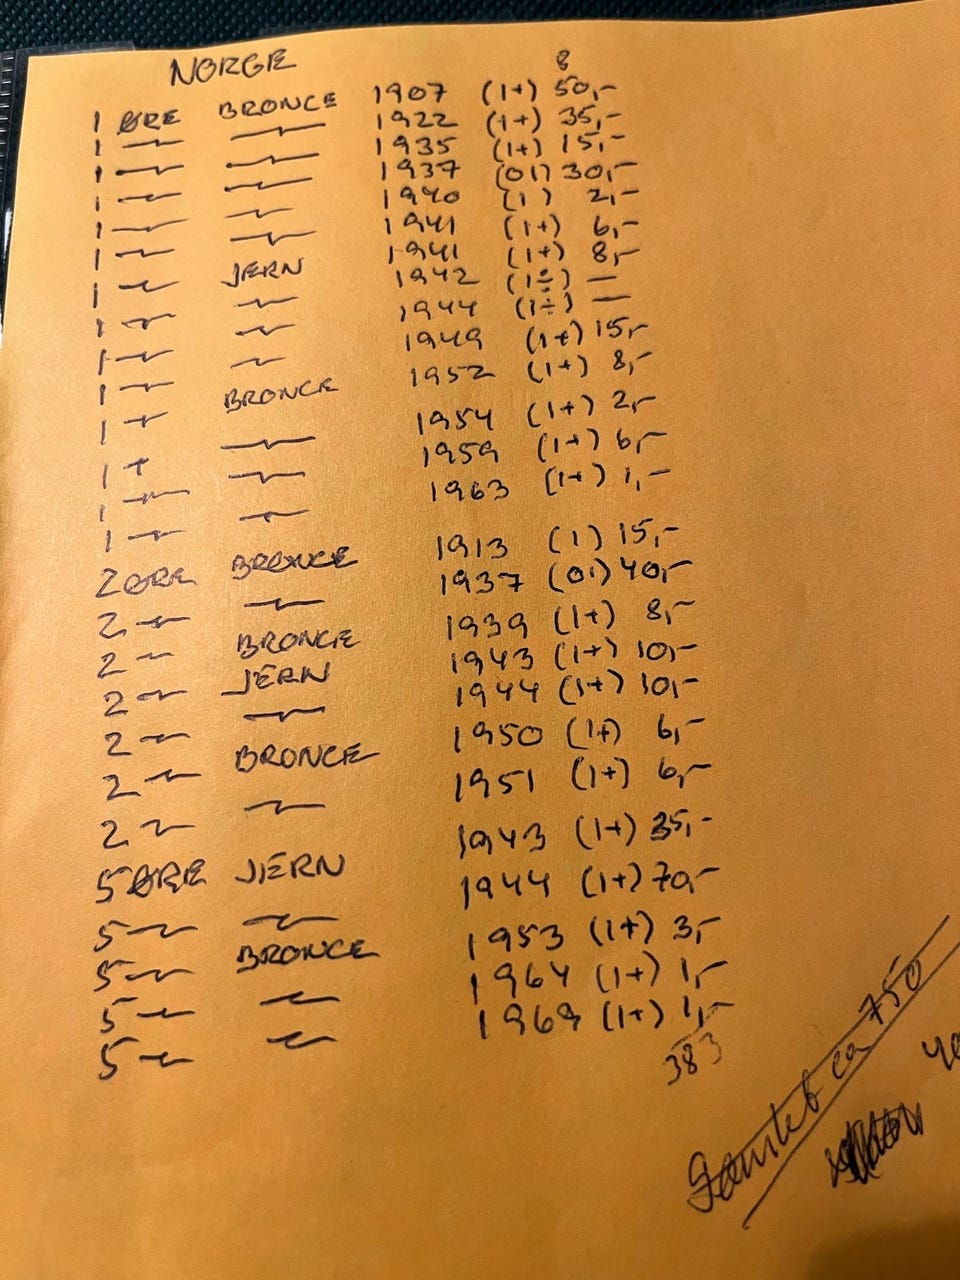 NORGE 8
1 ØRE BRONCE 1907 (1+) 50,-
1 -"- -"- 1922 (1+) 35,-
1 -"- -"- 1935 (1+) 15,-
1 -"- -"- 1937 (01) 30,-
1 -"- -"- 1940 (1) 2,-
1 -"- -"- 1941 (1+) 6,-
1 -"- JERN 1941 (1+) 8,-
1 -"- -"- 1942 (1÷) —
1 -"- -"- 1944 (1÷) —
1 -"- -"- 1949 (1+) 15,-
1 -"- BRONCE 1952 (1+) 8,-
1 -"- -"- 1954 (1+) 2,-
1 -"- -"- 1959 (1+) 6,-
1 -"- -"- 1963 (1+) 1,-
2 ØRE BRONCE 1913 (1) 15,-
2 -"- -"- 1937 (01) 40,-
2 -"- BRONCE 1939 (1+) 8,-
2 -"- JERN 1943 (1+) 10,-
2 -"- -"- 1944 (1+) 10,-
2 -"- BRONCE 1950 (1+) 6,-
2 -"- -"- 1951 (1+) 6,-
5 ØRE JERN 1943 (1+) 35,-
5 -"- -"- 1944 (1+) 70,-
5 -"- BRONCE 1953 (1+) 3,-
5 -"- -"- 1964 (1+) 1,-
5 -"- -"- 1969 (1+) 1,-
383
Samlet ca 750